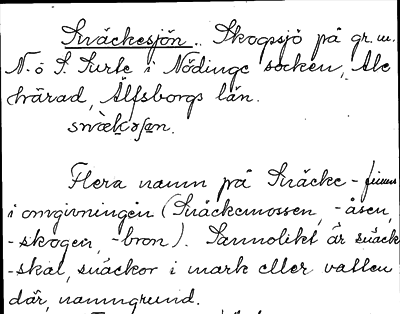 Snäckesjön. Skogssjö på gr. m.
N. o S. Surte i Nödinge socken, Ale
härad, Älfsborgs län.
snæ̀kəʃøn.
Flera namn på Snäcke- finns
i omgivningen (Snäckemossen, -åsen,
-skogen, -bron). Sannolikt är snäck
-skal, snäckor i mark eller vatten
där, namngrund.